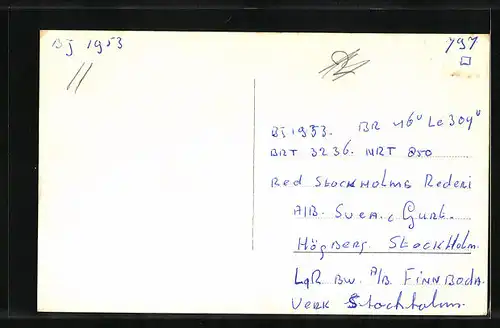 BJ 1953
797
BJ 1953. BR 46" Le 304"
BRT 3236. NRT 850
Red Stockholms Rederi
A/B. Svea. Gurt.
Högberg. Stockholm.
LgR BW. A/B. Finnboda.
Verk Stockholm.